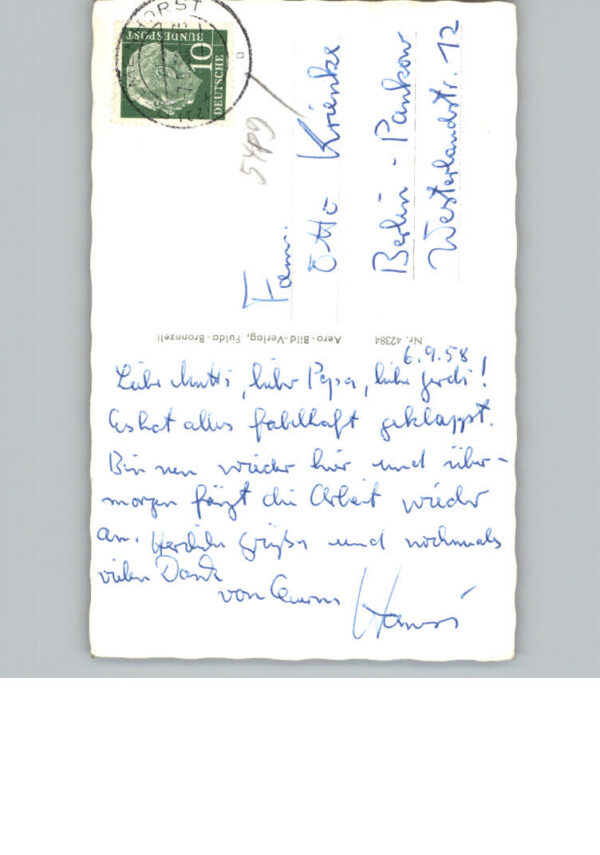 6.9.58
Liebe Mutti, lieber Papa, liebe Gerdi!
Es hat alles fabelhaft geklappt.
Bin nun wieder hier und über-
morgen fängt die Arbeit wieder
an. Herzliche Grüße und nochmals
vielen Dank
von
Fam.
Otto Krienke
Berlin - Pankow
Westerlandstr. 12
5409
Nr. 42384
Aero-Bild-Verlag, Fulda-Bronnzell
DEUTSCHE
BUNDESPOST
10